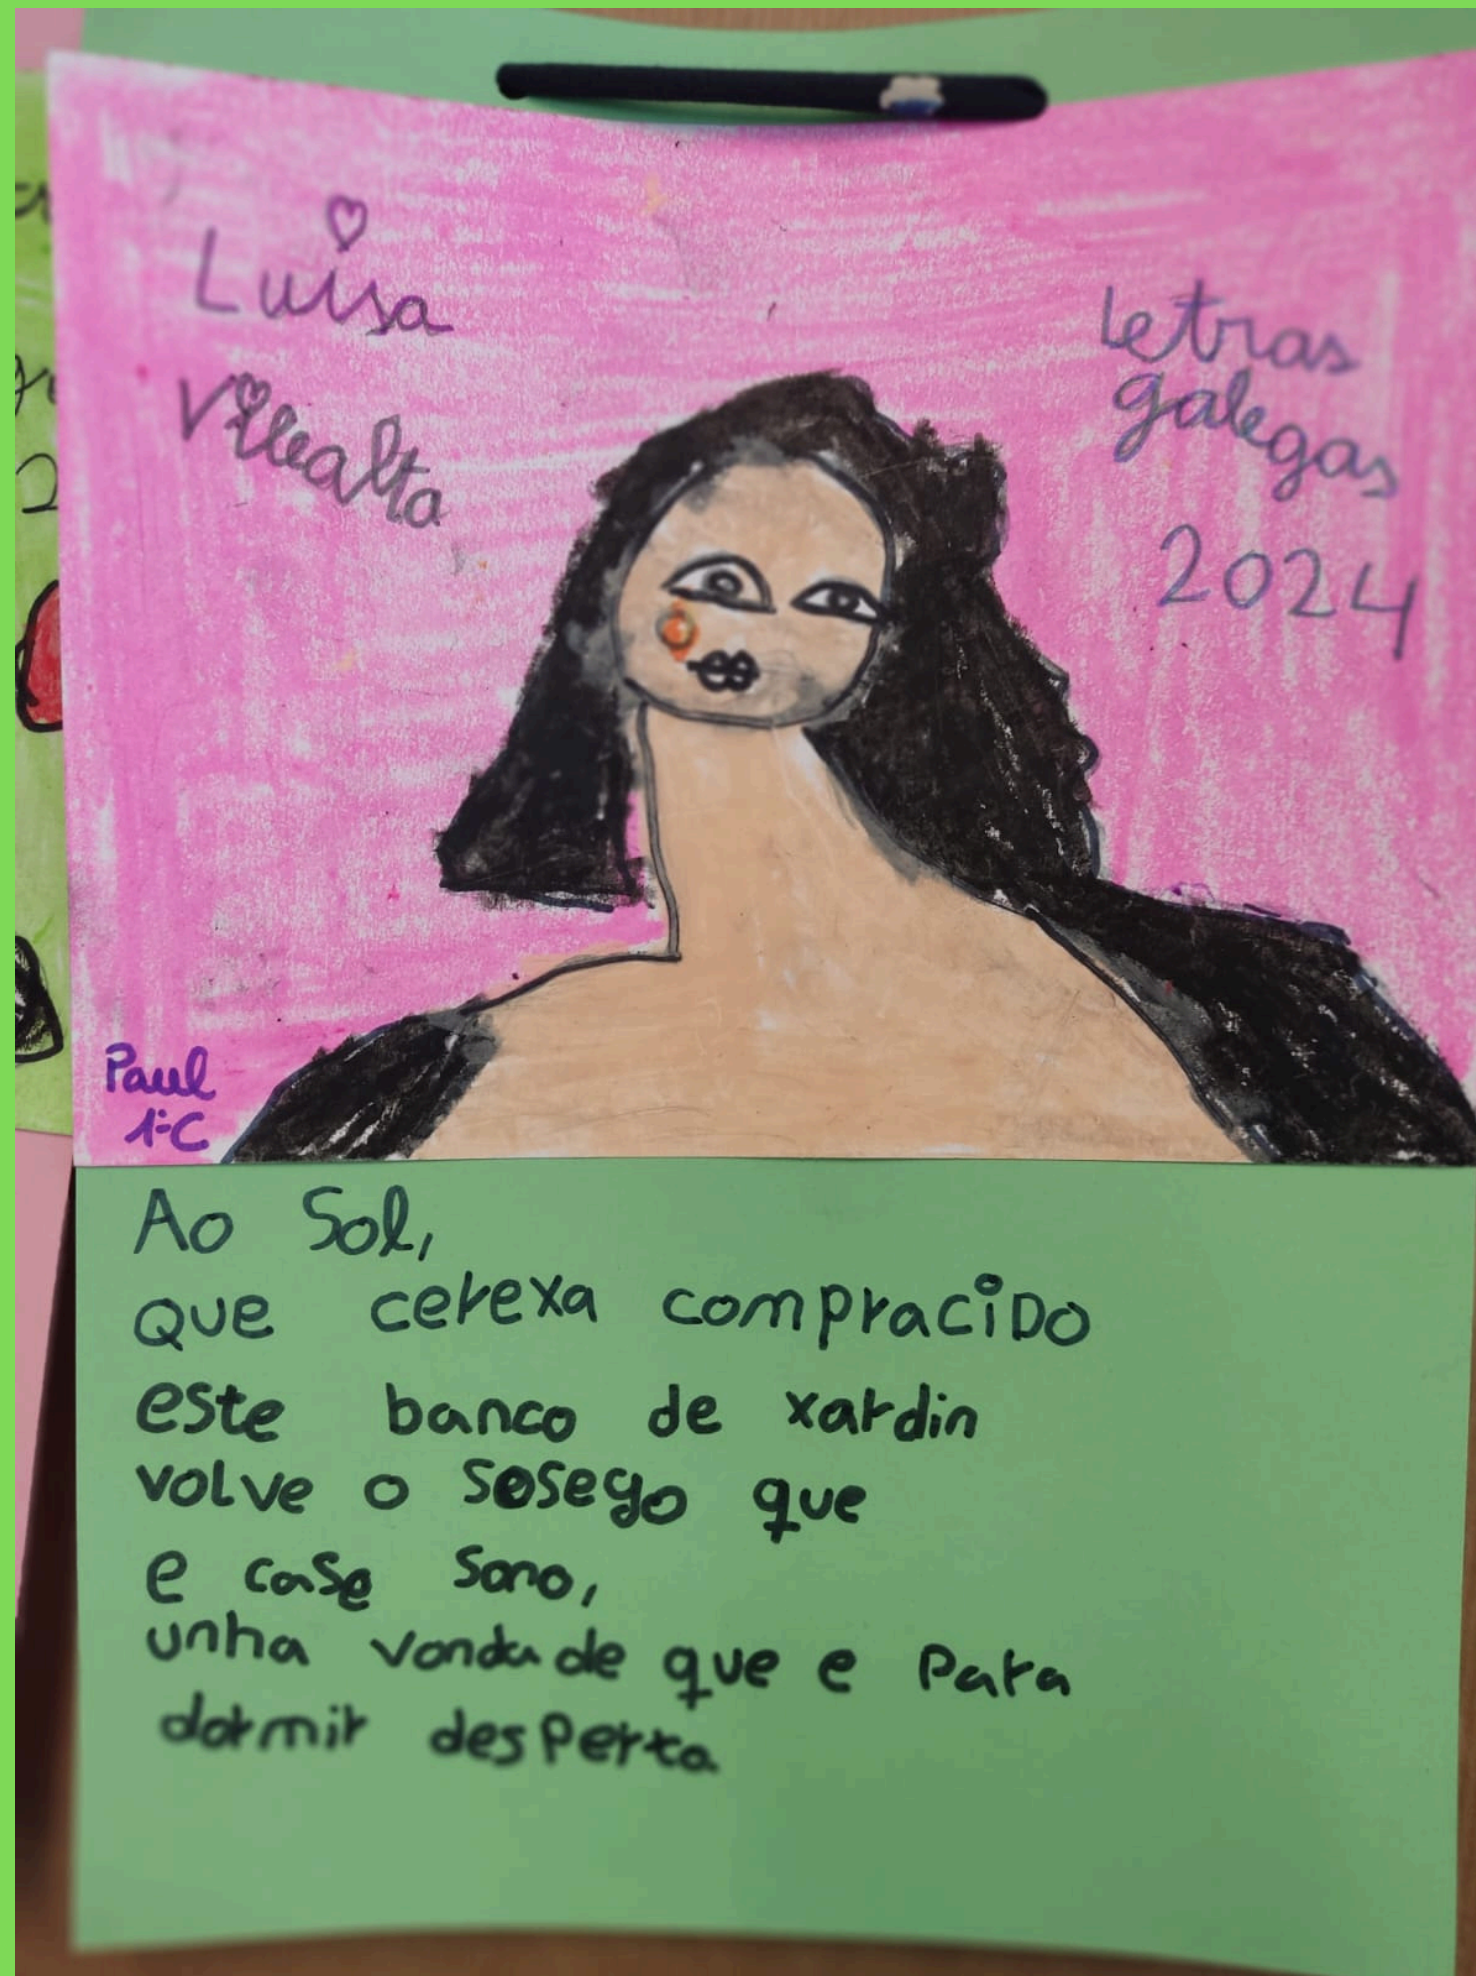 Luisa
Villalta
Letras
galegas
2024
Paul
1-C
Ao Sol,
que cerexa compracido
este banco de xardin
volve o sosego que
e case sono,
unha vondade que e para
dormir desperta